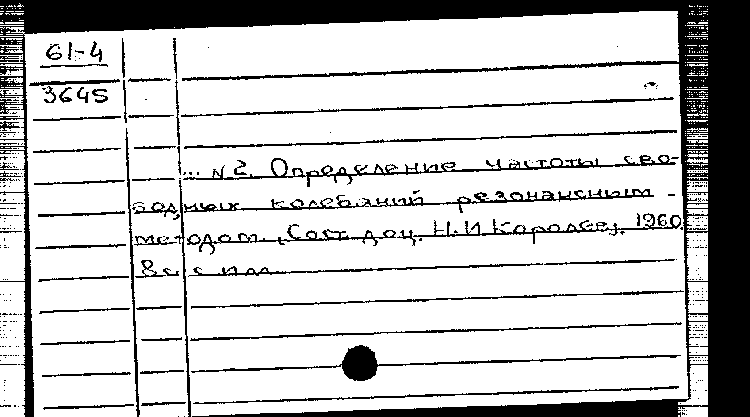 61-4
3645
... № 2. Определение частоты сво-
бодных колебаний резонансным
методом. (Сост. доц. Н.И. Королев). 1960.
8 с. с илл.